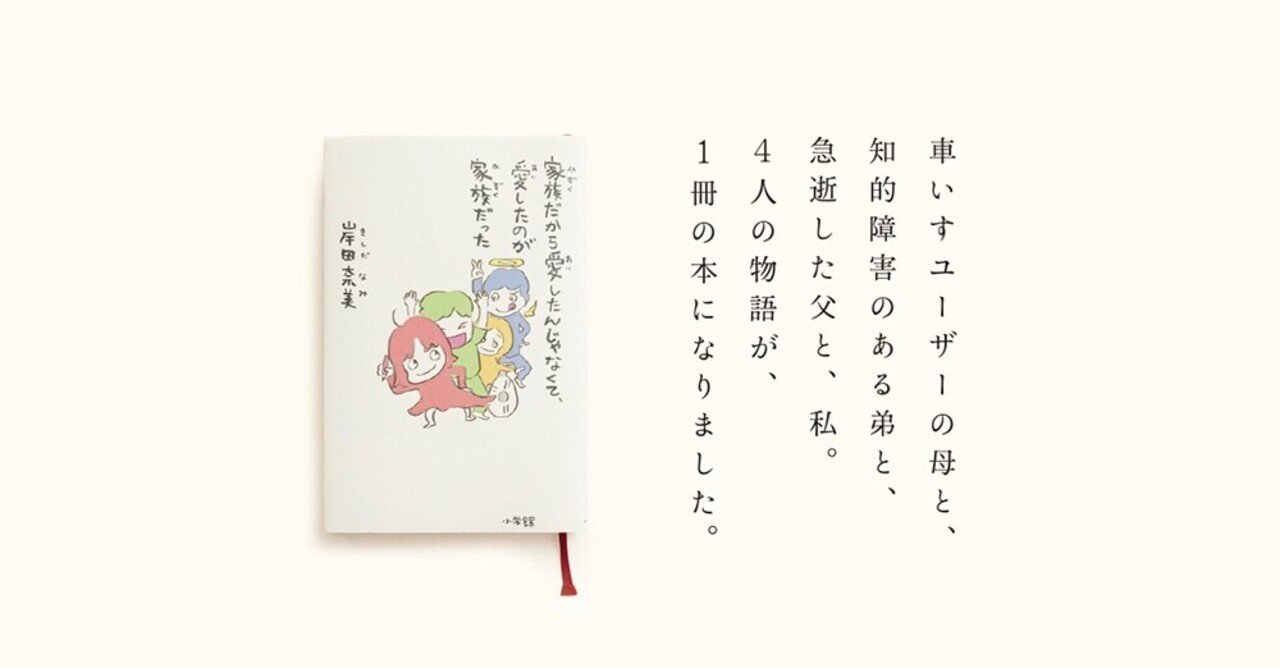 車いすユーザーの母と、
知的障害のある弟と、
急逝した父と、私。
4人の物語が、
1冊の本になりました。
家族だから愛したんじゃなくて、
かぞく
あい
愛したのが
あい
家族だった
かぞく
岸田奈美
きしだ なみ
小学館